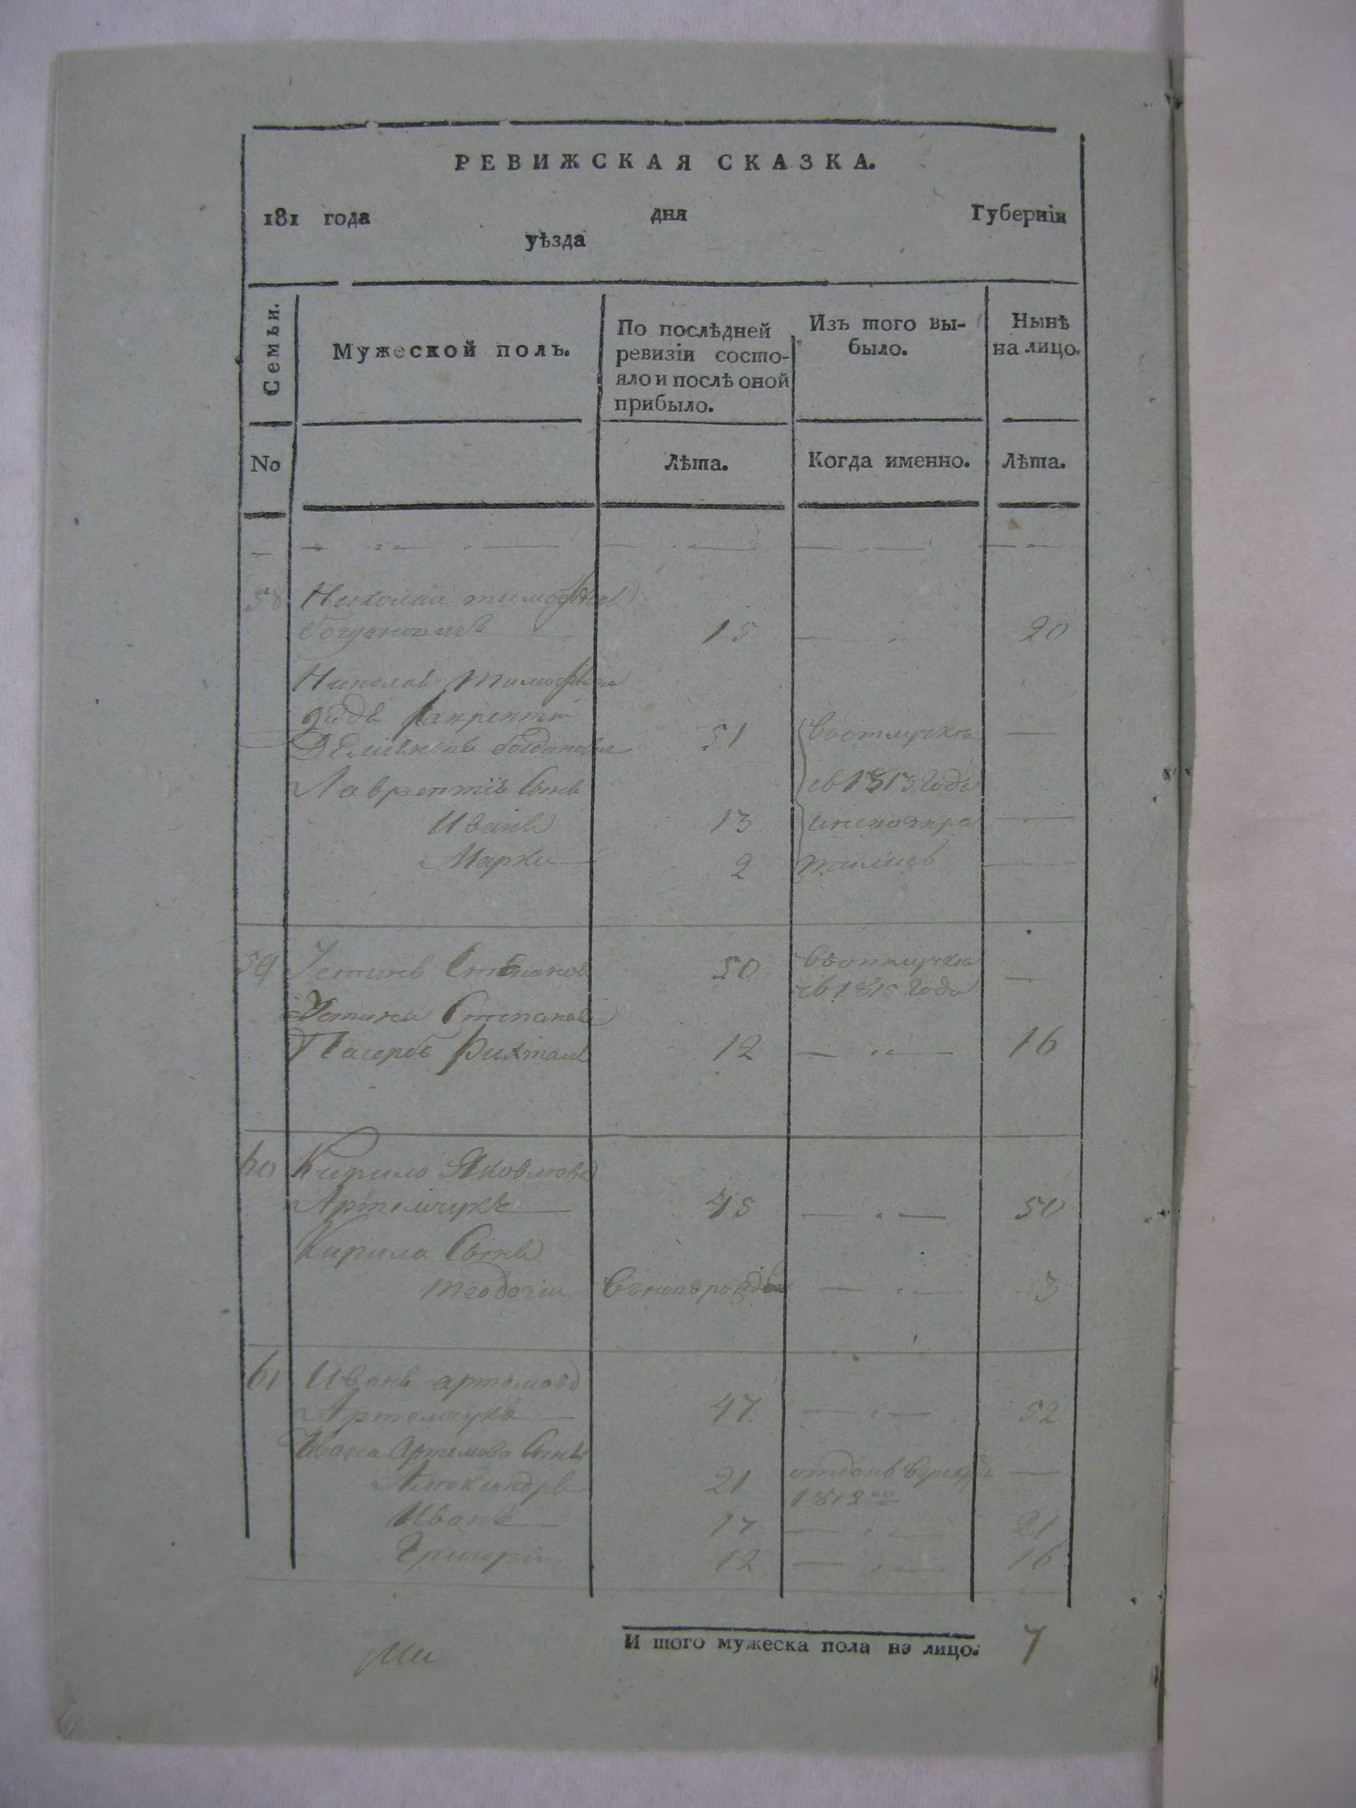 РЕВИЖСКАЯ СКАЗКА.
181 года дня Губерніи
уѣзда
Семьи.
Мужеской полъ.
По послѣдней ревизіи состояло и послѣ оной прибыло.
Изъ того выбыло.
Нынѣ на лицо.
No Лѣта. Когда именно. Лѣта.
58 Николай тимофѣевъ
15 20
Николая Тимофѣева
дядя Лаврентий
51 въ отлучкѣ —
Лаврентія Сынъ съ 1813 года
Иванъ 13 —
Марко 2 —
59 Устинъ Степановъ 50 въ отлучкѣ
съ 1815 года —
Устина Степанова
12 — 16
60 Кирило Яковлевъ
Артемчукъ 45 — 50
Кирила Сынъ
Теодосій 3
61 Иванъ артемовъ
Артемчукъ 47 — 52
Ивана Артемова Сыны
Александръ 21 отданъ —
1812
Иванъ 17 — 21
Григорій 12 — 16
И того мужеска пола на лицо. 7